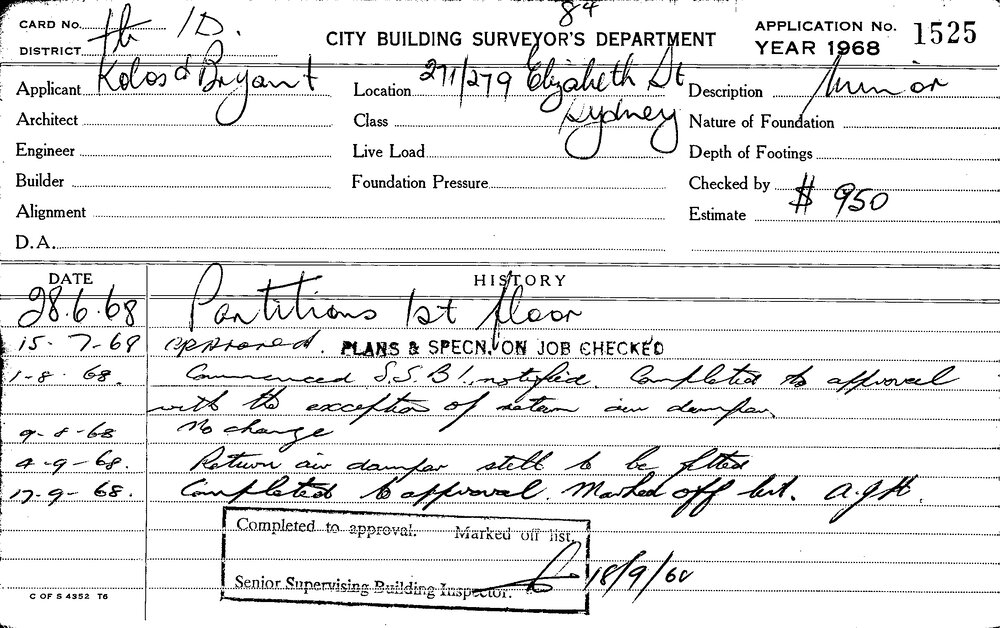 84
CARD No. Hb 1D.
CITY BUILDING SURVEYOR'S DEPARTMENT
APPLICATION No. 1525
DISTRICT
YEAR 1968
Applicant Kolos & Bryant
Location 271/279 Elizabeth St
Sydney
Description Minor
Architect
Class
Nature of Foundation
Engineer
Live Load
Depth of Footings
Builder
Foundation Pressure
Checked by
Alignment
Estimate $ 950
D.A.
DATE HISTORY
28.6.68 Partitions 1st floor
15-7-68 approved. PLANS & SPECN. ON JOB CHECKED
1-8-68. Commenced S.S.B.I. notified. Completed to approval
with the exception of return air damper
9-8-68 No change
4-9-68. Return air damper still to be fitted
17-9-68. Completed to approval. Marked off list. A.J.H.
Completed to approval. Marked off list.
Senior Supervising Building Inspector. 18/9/68
C OF S 4352 T6